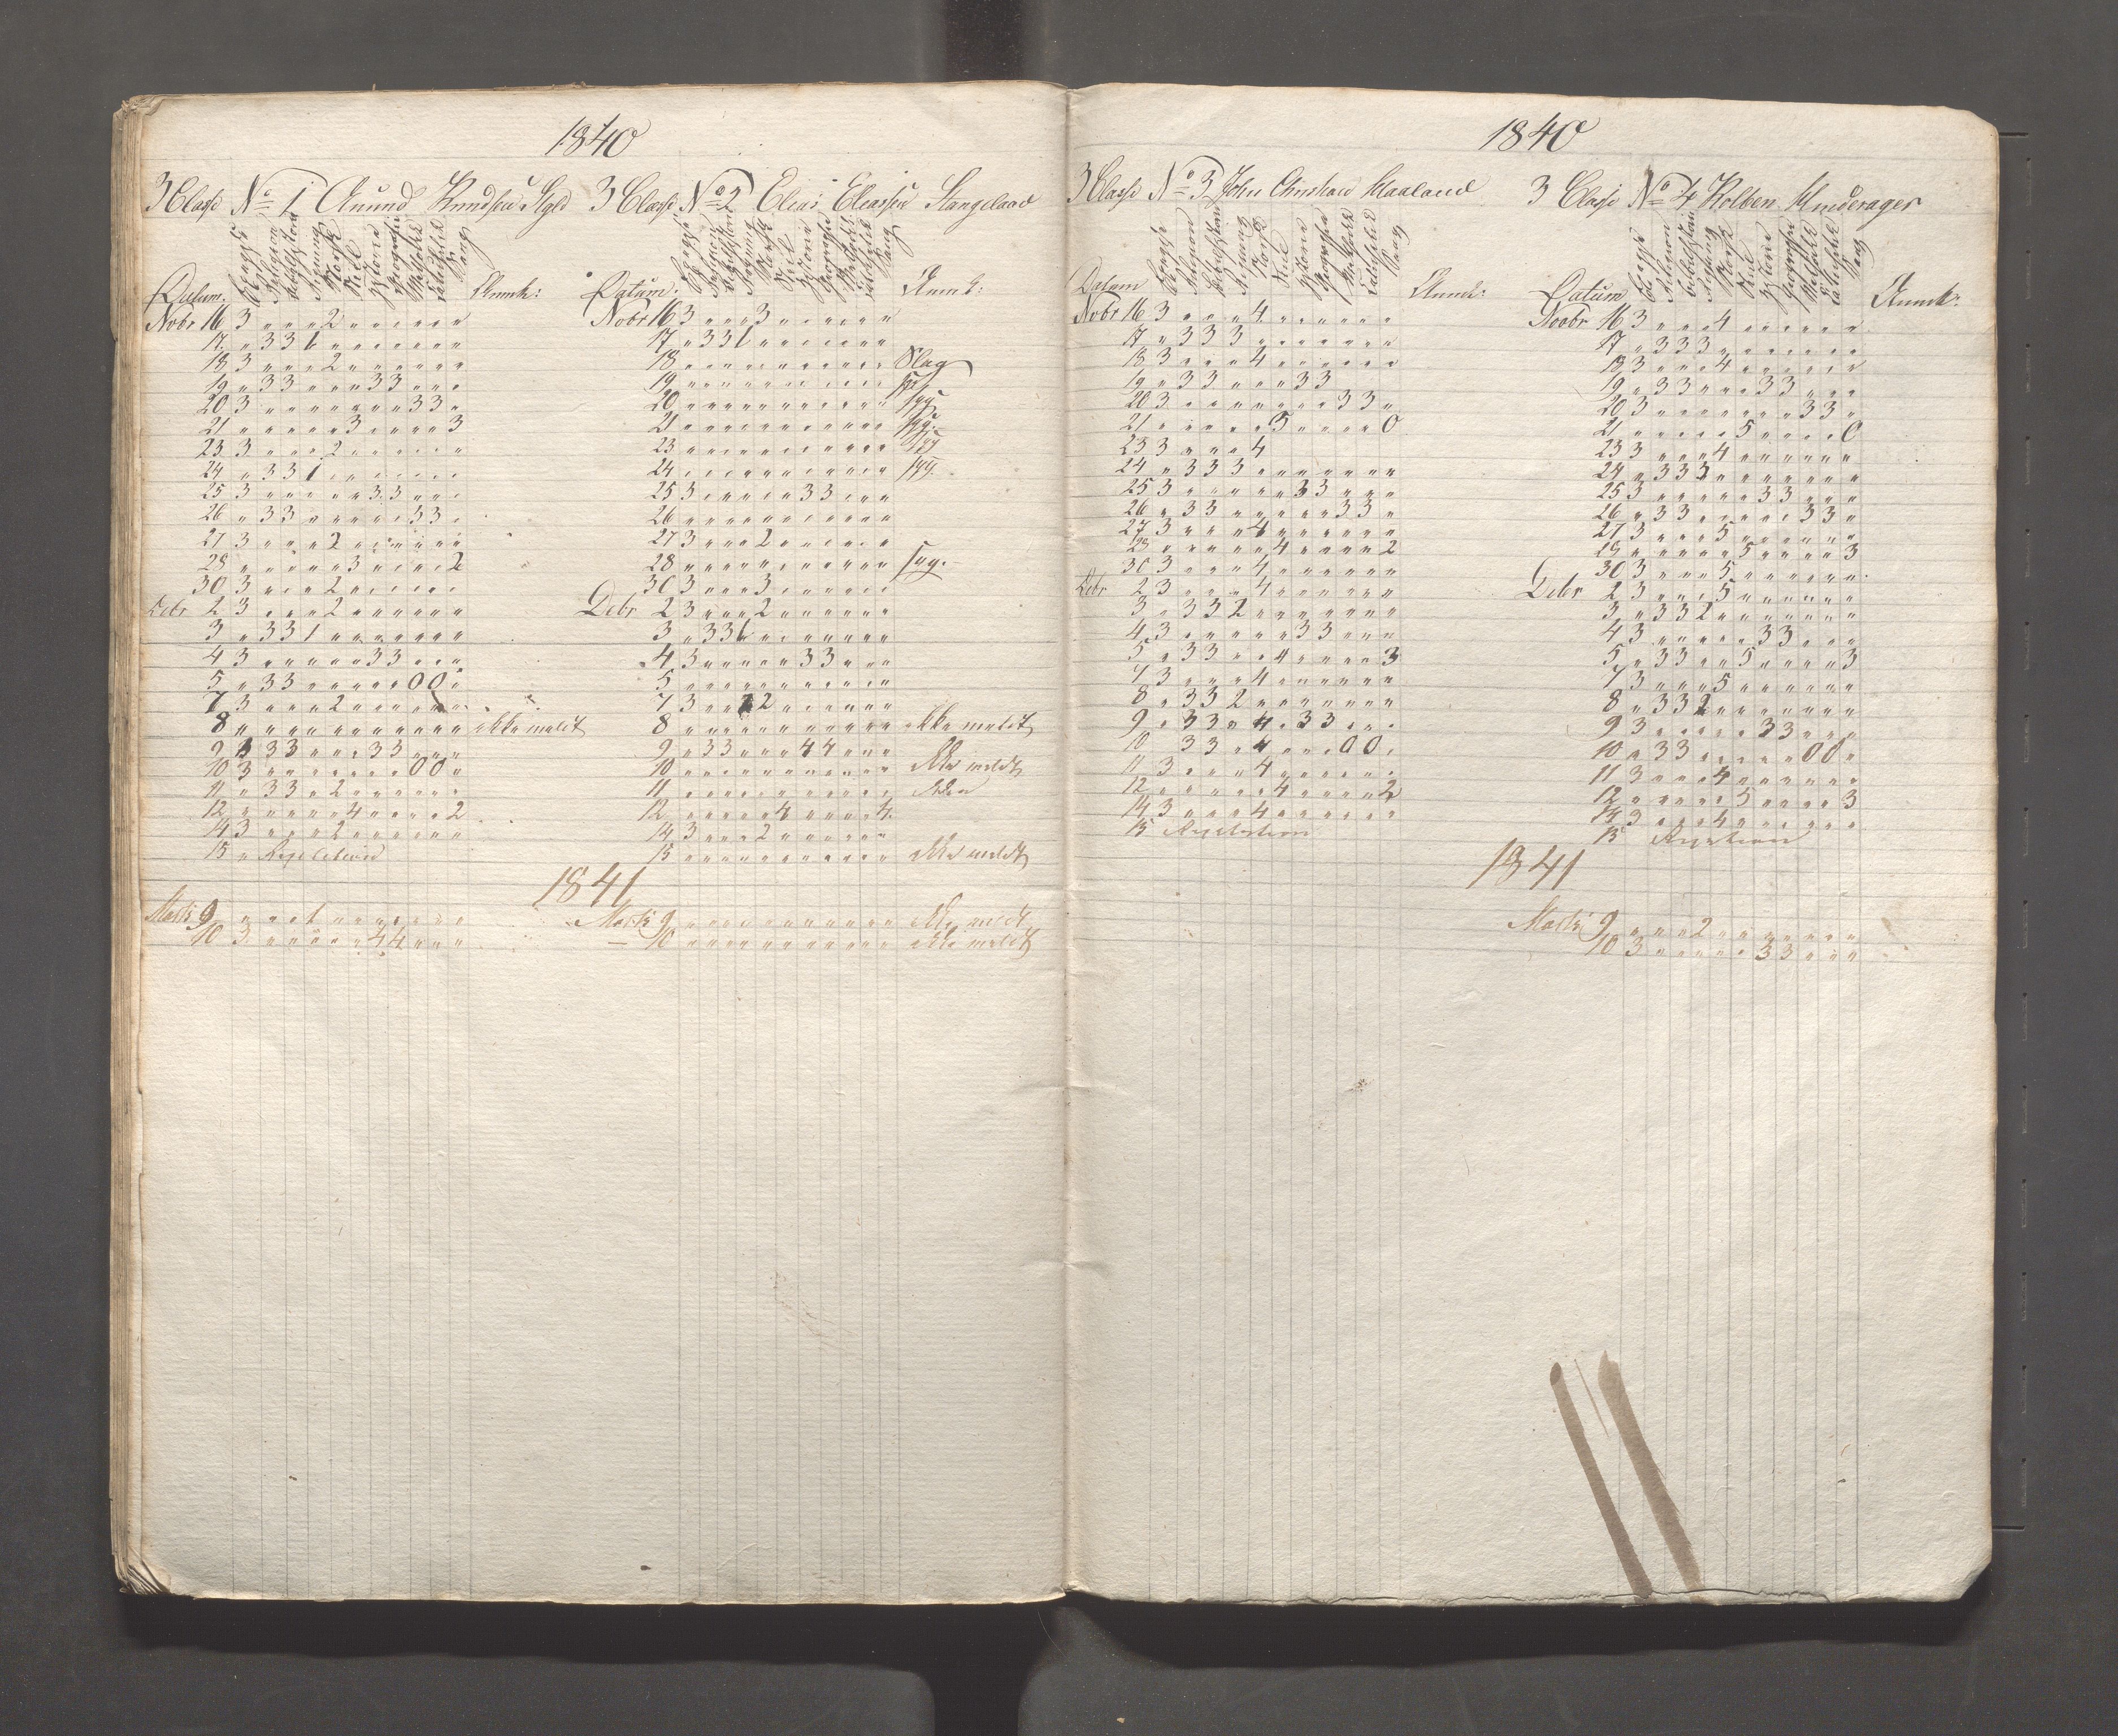 1840
3 Classe No 1 Anund Knudsen
Religion
Regning
Norsk
Stiil
Historie
Geographie
Sang
Datum. Anmk:
Nobr 16 3 " " " 2 " " " " " "
17. " 3 3 1 " " " " " " "
18 3 " " " 2 " " " " " "
19 " 3 3 " " " 3 3 " " "
20 3 " " " " " " " 3 3 "
21 " " " " " 3 " " " " 3
23 3 " " " 2 " " " " " "
24 " 3 3 1 " " " " " " "
25 3 " " " " " 3 3 " " "
26 " 3 3 " " " " " 3 3 "
27 3 " " " 2 " " " " " "
28 " " " " " 3 " " " " 2
30 3 " " " 2 " " " " " "
Debr 2 3 " " " 2 " " " " " "
3 " 3 3 1 " " " " " " "
4 3 " " " " " 3 3 " " "
5 " 3 3 " " " " " 0 0 "
7 3 " " " 2 " " " " " "
8 " " " " " " " " " " " ikke mødt
9 3 3 3 " " " 3 3 " " "
10 3 " " " " " " " 0 0 "
11 " 3 3 " 2 " " " " " "
12 " " " " " 4 " " " " 2
14 3 " " " 2 " " " " " "
15 " Repetition
3 Classe No 2 Elias Eliassen Stangeland
Religion
Regning
Norsk
Stiil
Historie
Geographie
Sang
Datum: Anmk:
Nobr 16 3 " " " 3 " " " " " "
17 " 3 3 1 " " " " " " "
18 " " " " " " " " " " "
19 " " " " " " " " " " " syg
20 " " " " " " " " " " " syg
21 " " " " " " " " " " " syg.
23 " " " " " " " " " " " syg
24 " " " " " " " " " " " syg.
25 3 " " " " " 3 3 " " "
26 " " " " " " " " " " "
27 3 " " " 2 " " " " " "
28 " " " " " " " " " " " syg.
30 3 " " " 3 " " " " " "
Debr 2 3 " " " 2 " " " " " "
3 " 3 3 1 " " " " " " "
4 3 " " " " " 3 3 " " "
5 " " " " " " " " " " "
7 3 " " " 2 " " " " " "
8 " " " " " " " " " " " ikke mødt
9 " 3 3 " " " 4 4 " " "
10 " " " " " " " " " " " ikke mødt
11 " " " " " " " " " " "
12 " " " " " 4 " " " " 4.
14 3 " " " 2 " " " " " "
15 " " " " " " " " " " " ikke mødt
1841
Marts 9 " " " 1 " " " " " " "
10 3 " " " " " 4 4 " " "
Marts 9 " " " " " " " " " " " ikke mødt
— 10 " " " " " " " " " " " ikke mødt
1840
3 Classe No 3 John Christian Haaland
Religion
Regning
Norsk
Stiil
Historie
Geographie
Sang
Datum Anmk:
Nobr 16 3 " " " 4 " " " " " "
17 " 3 3 3 " " " " " " "
18 3 " " " 4 " " " " " "
19 " 3 3 " " " 3 3
20 3 " " " " " " " 3 3 "
21 " " " " " 5 " " " " 0
23 3 " " " 4
24 " 3 3 3 " " " " " " "
25 3 " " " " " 3 3 " " "
26 " 3 3 " " " " " 3 3 "
27 3 " " " 4 " " " " " "
28 " " " " " 4 " " " " 2
30 3 " " " 4 " " " " " "
Debr 2 3 " " " 4 " " " " " "
3 " 3 3 2 " " " " " " "
4 3 " " " " " 3 3 " " "
5 " 3 3 " " 4 " " " " 3
7 3 " " " 4 " " " " " "
8 " 3 3 2 " " " " " " "
9 " 3 3 " 4 " 3 3 " " "
10 3 3 " 4 " " " 0 0 "
11 3 " " " 4 " " " " " "
12 " " " " " 4 " " " " 2
14 3 " " " 4 " " " " " "
15 Repetition
3 Classe No 4 Kolben
Religion
Regning
Norsk
Stiil
Historie
Geographie
Sang
Datum Anmk:
Novbr 16 3 " " " 4 " " " " " "
17 " 3 3 3 " " " " " " "
18 3 " " " 4 " " " " " "
19 " 3 3 " " " 3 3 " " "
20 3 " " " " " " " 3 3 "
21 " " " " " 5 " " " " 0
23 3 " " " 4 " " " " " "
24 " 3 3 3 " " " " " " "
25 3 " " " " " 3 3 " " "
26 " 3 3 " " " " " 3 3 "
27 3 " " " 5 " " " " " "
" " " " " 5 " " " " 3
30 3 " " " 5 " " " " " "
Debr 2 3 " " " 5 " " " " " "
3 " 3 3 2 " " " " " " "
4 3 " " " " " 3 3 " " "
5 " 3 3 " " 5 " " " " 3
7 3 " " " 5 " " " " " "
8 " 3 3 2 " " " " " " "
9 3 " " " " " 3 3 " " "
10 " 3 3 " " " " " 0 0 "
11 3 " " " 4 " " " " " "
12 " " " " " 5 " " " " 3
14 3 " " " 4 " " " " " "
15 Repetition
1841
Marts 9 " " " 2 " " " " " " "
10 3 " " " " " 3 3 " " "